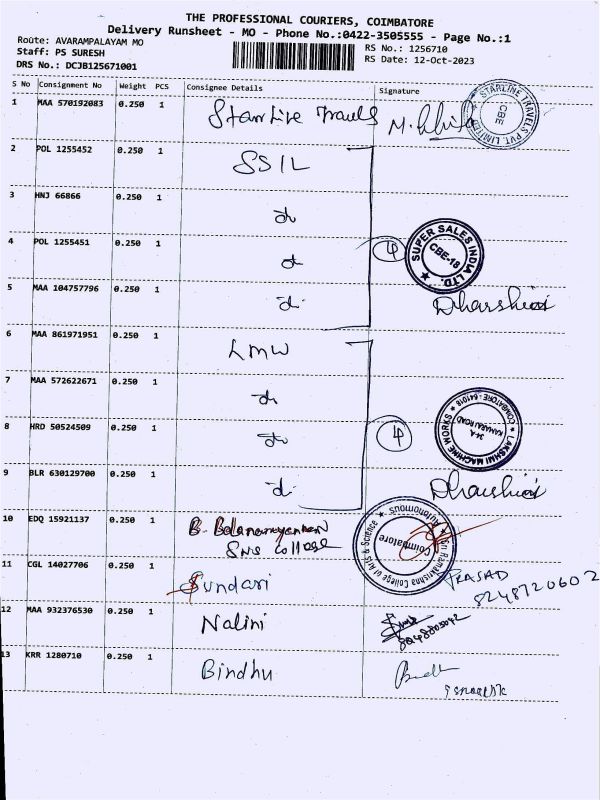 THE PROFESSIONAL COURIERS, COIMBATORE
Delivery Runsheet - MO - Phone No.:0422-3505555 - Page No.:1
Route: AVARAMPALAYAM MO
RS No.: 1256710
Staff: PS SURESH
RS Date: 12-Oct-2023
DRS No.: DCJB125671001
S No Consignment No Weight PCS Consignee Details Signature
1 MAA 570192083 0.250 1 Starlive Travels
STARLINE TRAVELS PVT. LIMITED CBE
2 POL 1255452 0.250 1 SSIL
3 HNJ 66866 0.250 1 do
4 POL 1255451 0.250 1 do 4
SUPER SALES INDIA LTD. CBE-18
5 MAA 104757796 0.250 1 do Dharshini
6 MAA 861971951 0.250 1 LMW
7 MAA 572622671 0.250 1 do
8 HRD 50524509 0.250 1 do 4
LAKSHMI MACHINE WORKS COIMBATORE - 641018 34-A KAMARAJ ROAD
9 BLR 630129700 0.250 1 do Dharshini
10 EDQ 15921137 0.250 1 B. Balanarayanan
SNS College
Sri Ramakrishna College of Arts & Science Autonomous Coimbatore
11 CGL 14027706 0.250 1 Sundari PRASAD
8248720602
12 MAA 932376530 0.250 1 Nalini
13 KRR 1280710 0.250 1 Bindhu